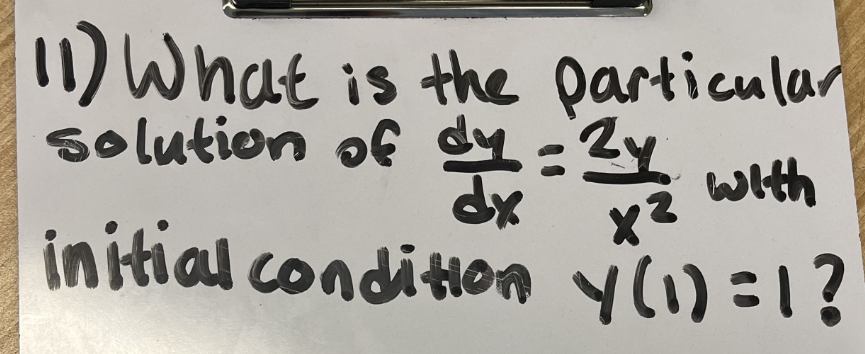 11) What is the particular
solution of dy/dx = 2y/x² with
initial condition y(1) = 1?